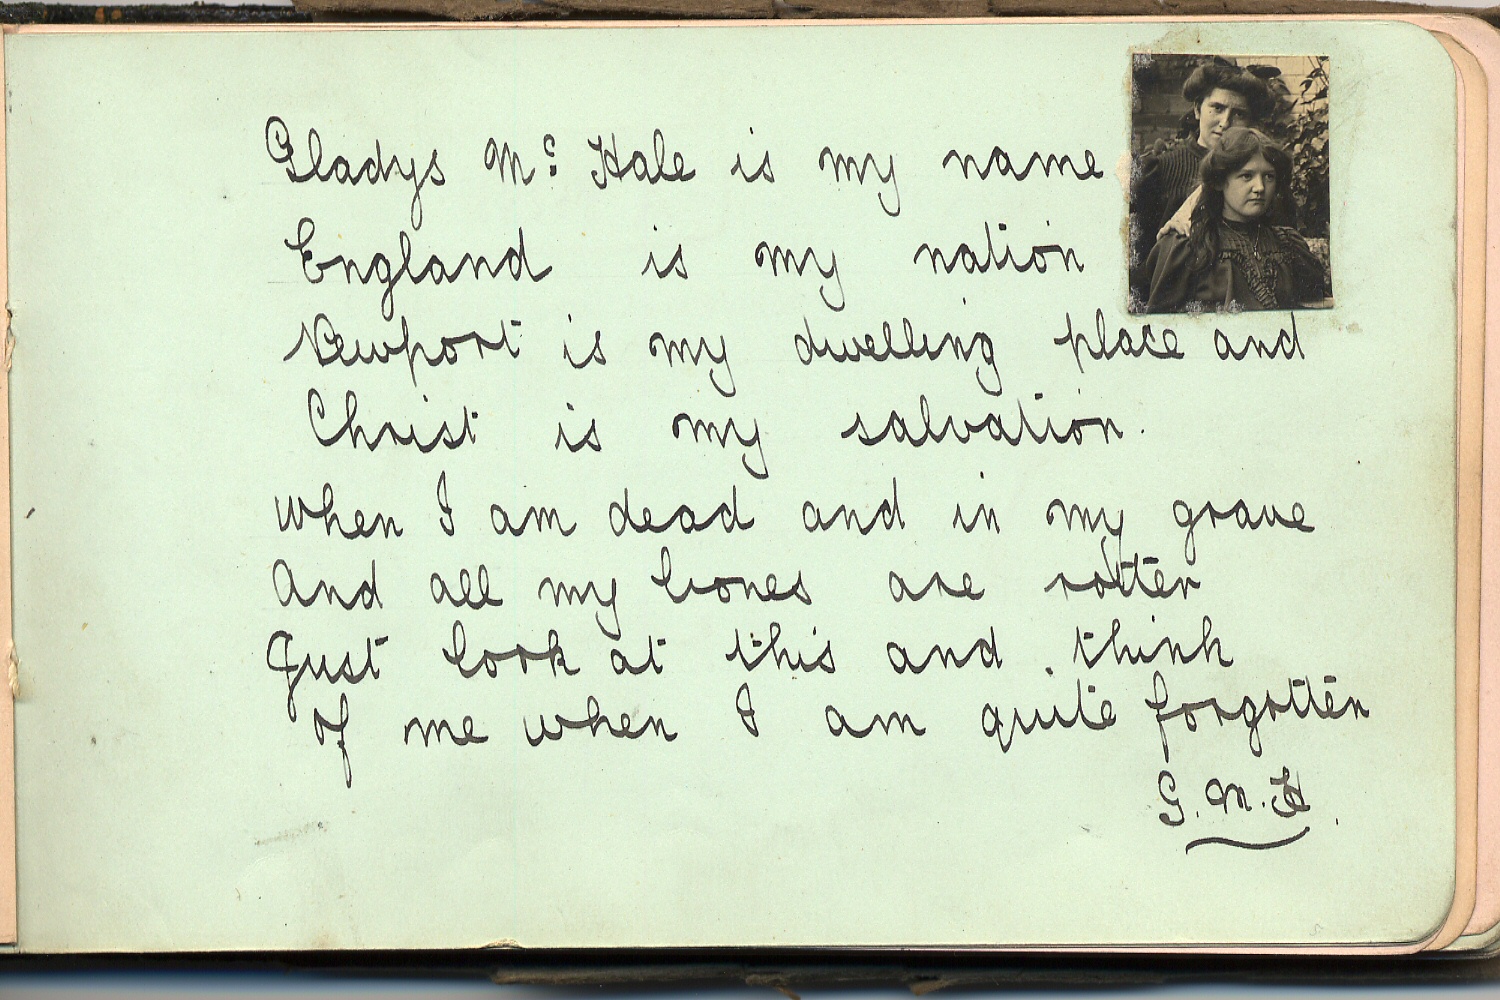 Gladys Mc Hale is my name
England is my nation
Newport is my dwelling place and
Christ is my salvation.
when I am dead and in my grave
And all my bones are rotten
Just look at this and think
of me when I am quite forgotten
G. M. H.